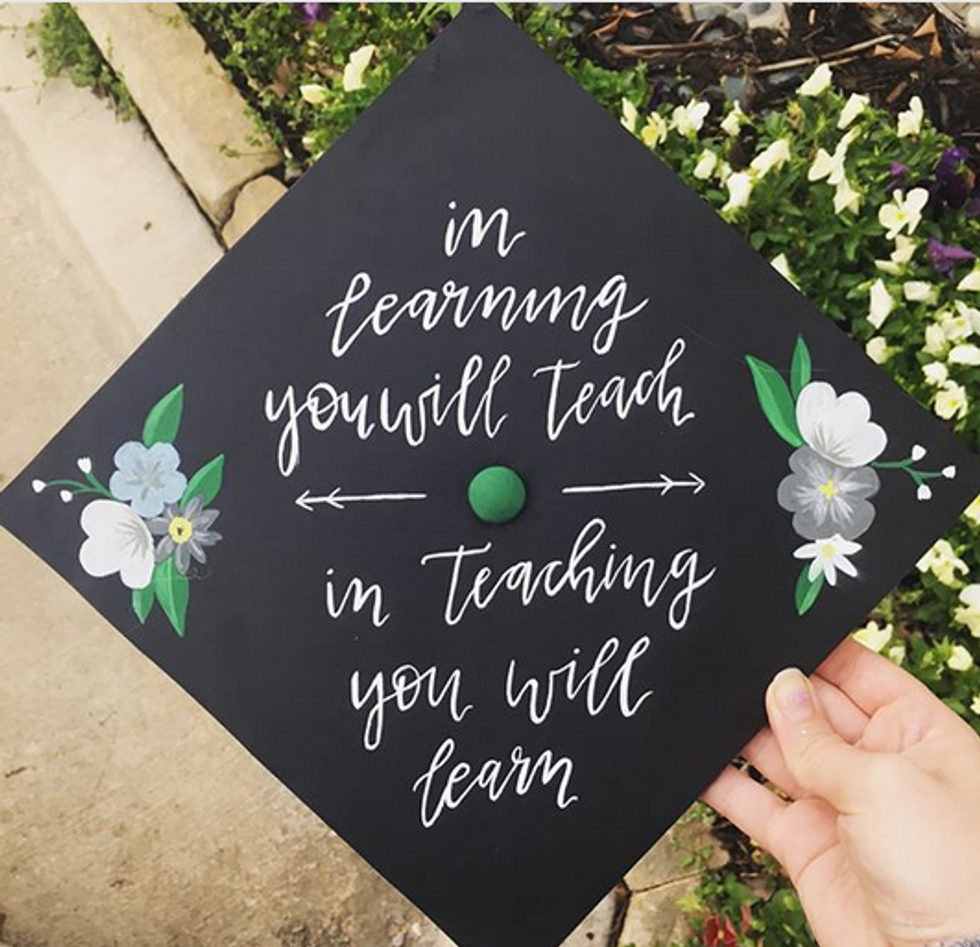 in
learning
you will teach
in teaching
you will
learn